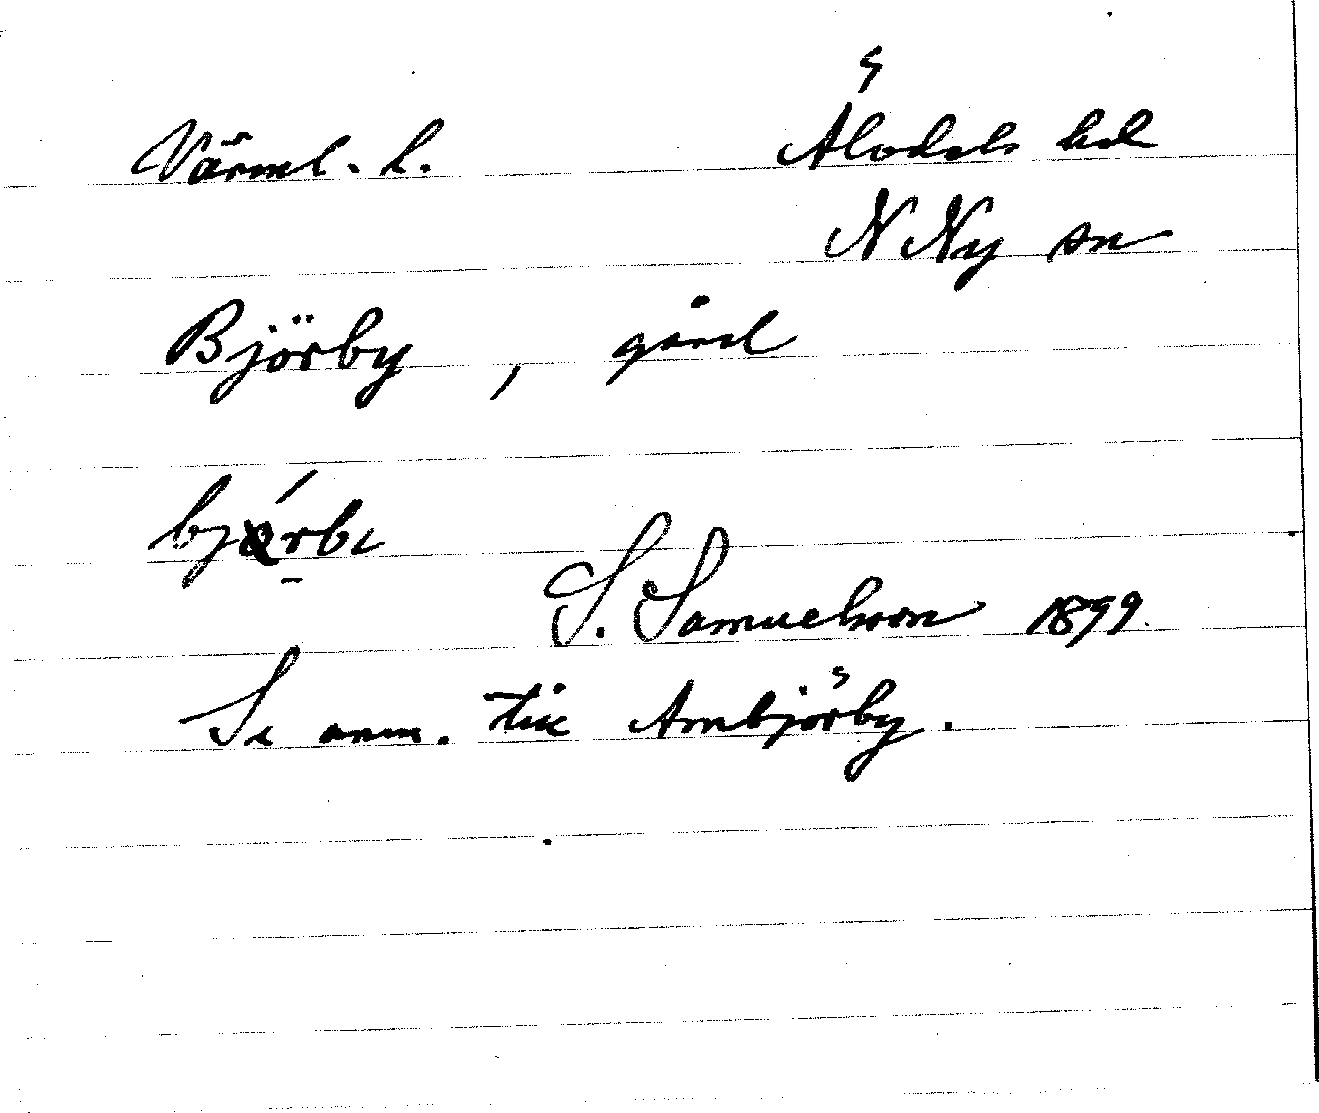 Värml. l. Älvdals hd
N Ny sn
Björby, gård
S. Samuelsson 1899.
Se anm. till Ambjörby.